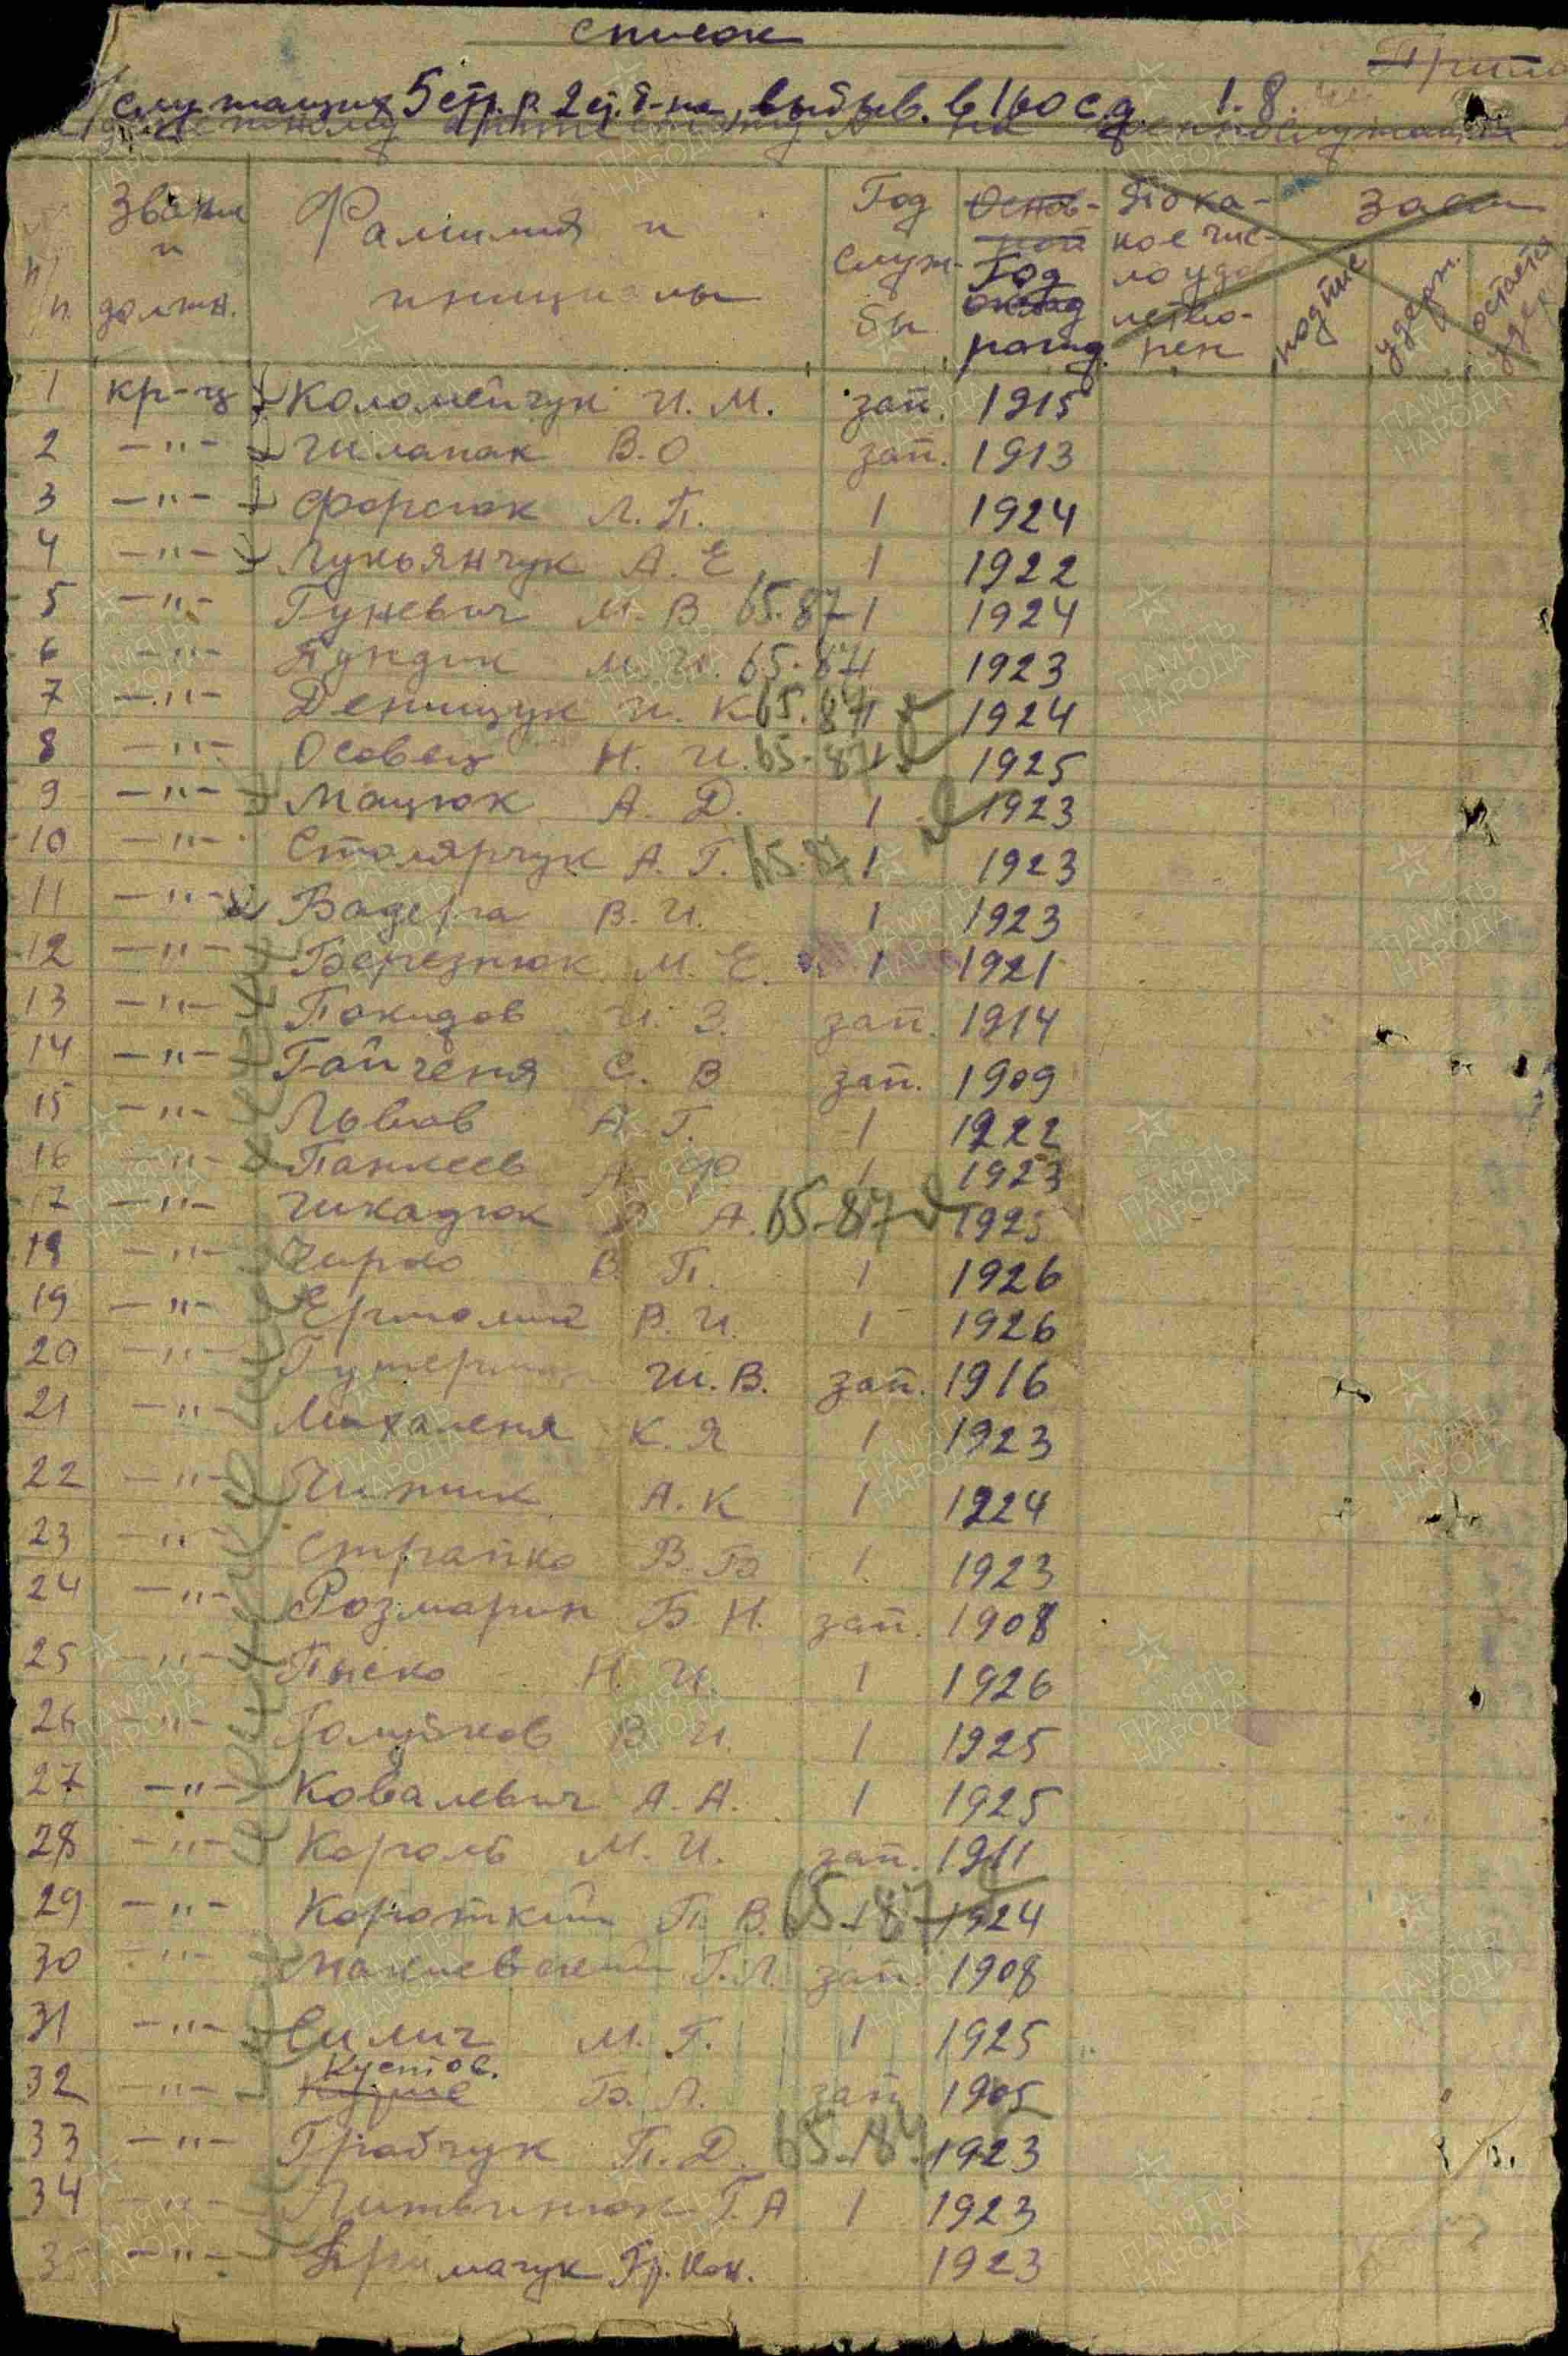 список
служащих 5 стр. р. 2 с. б-на, выбыв. в 160 с.д. 1.8.
п/п. Звани и должн. Фамилия и инициалы Год служ-бы Год рожд. По ка-кое чис-ло удо влетво-рен Заем подпис удерж. остаётся
1 кр-ц Коломейчук И. М. зап. 1915
2 -"- Шлапак В. О зап. 1913
3 -"- Форсюк Л. П. 1 1924
4 -"- Лукьянчук А. Е 1 1922
5 -"- Гуневич М. В 65-87 1 1924
6 -"- М. И. 65-87 1 1923
7 -"- Денищук И. К 65-87 1 1924
8 -"- Осовец Н. И. 65-87 1 1925
9 -"- Мацюк А. Д. 1 1923
10 -"- Столярчук А. Г. 65-87 1 1923
11 -"- Вадейга В. И. 1 1923
12 -"- Березнюк М. Е. 1 1921
13 -"- Покидов И. З. зап. 1914
14 -"- Гайченя С. В зап. 1909
15 -"- Львов А. Г. 1 1922
16 -"- Панкеев А. Ф 1 1923
17 -"- Чикадюк А. 65-87 1925
18 -"- Чирко В. П. 1 1926
19 -"- В. И. 1 1926
20 -"- Ш. В. зап. 1916
21 -"- Михаленя К. Я 1 1923
22 -"- А. К 1 1924
23 -"- Страпко В. Б 1 1923
24 -"- Розмарин Б. Н. зап. 1908
25 -"- Н. И. 1 1926
26 -"- Голубков В. И. 1 1925
27 -"- Ковалевич А. А. 1 1925
28 -"- Король М. И. зап. 1911
29 -"- Короткий П. В. 65-87 1924
30 -"- Г. Л. зап. 1908
31 -"- Силич М. Г. 1 1925
Кустов.
32 -"- Б. Л. зап 1905
33 -"- Грабчук П. Д. 65-87 1923
34 -"- Литвинюк Г. А 1 1923
3 -"- Примачук Гр. Кон. 1923